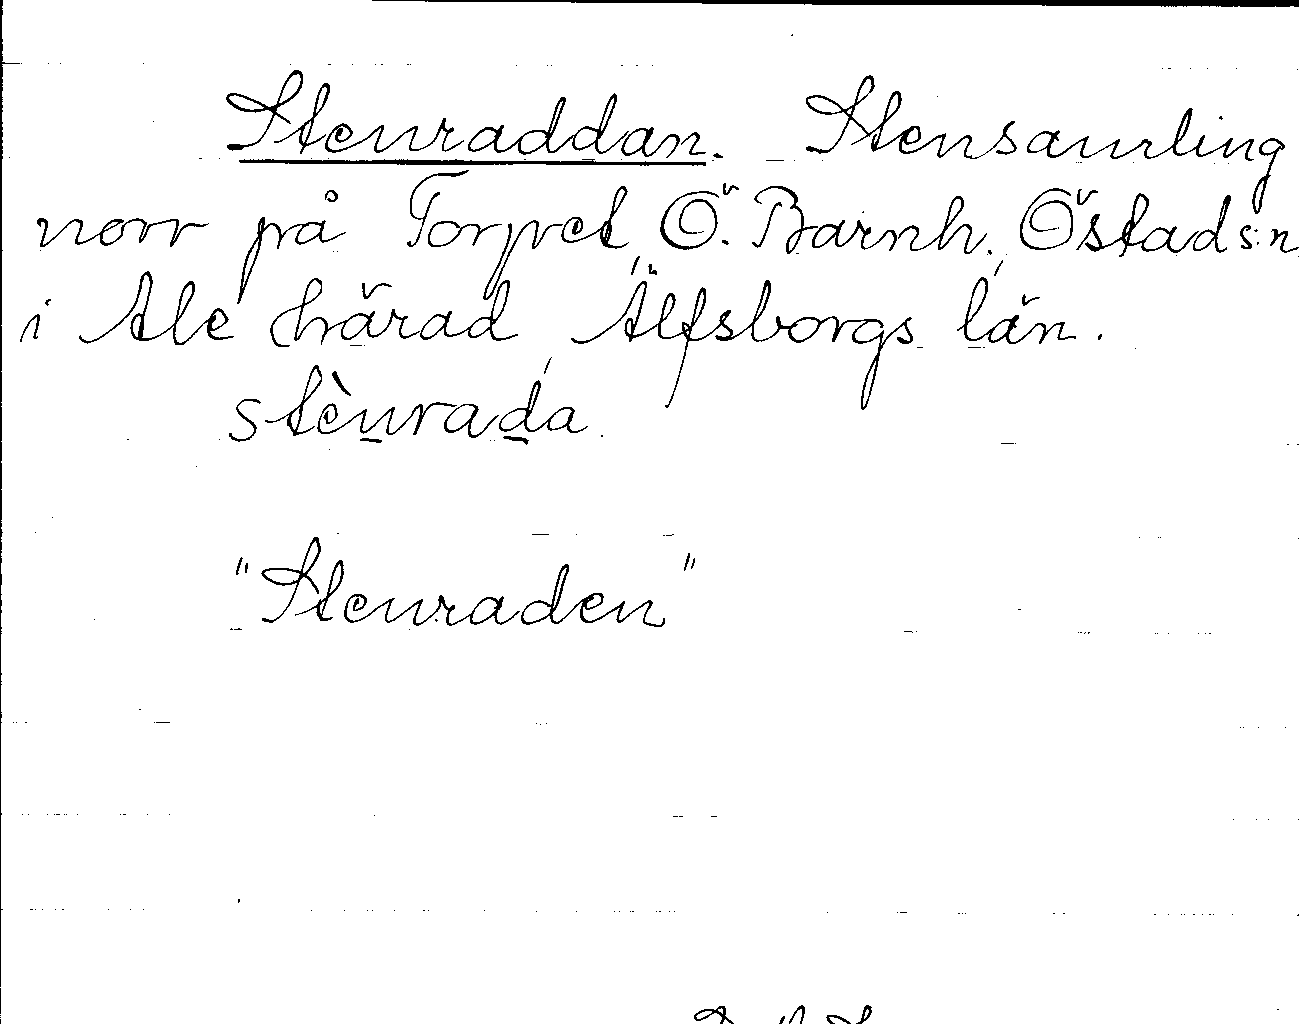 Stenraddan. Stensamling
norr på Torpet, Ö. Barnh., Östads:n
i Ale härad, Älfsborgs län.
stènrada
"Stenraden"